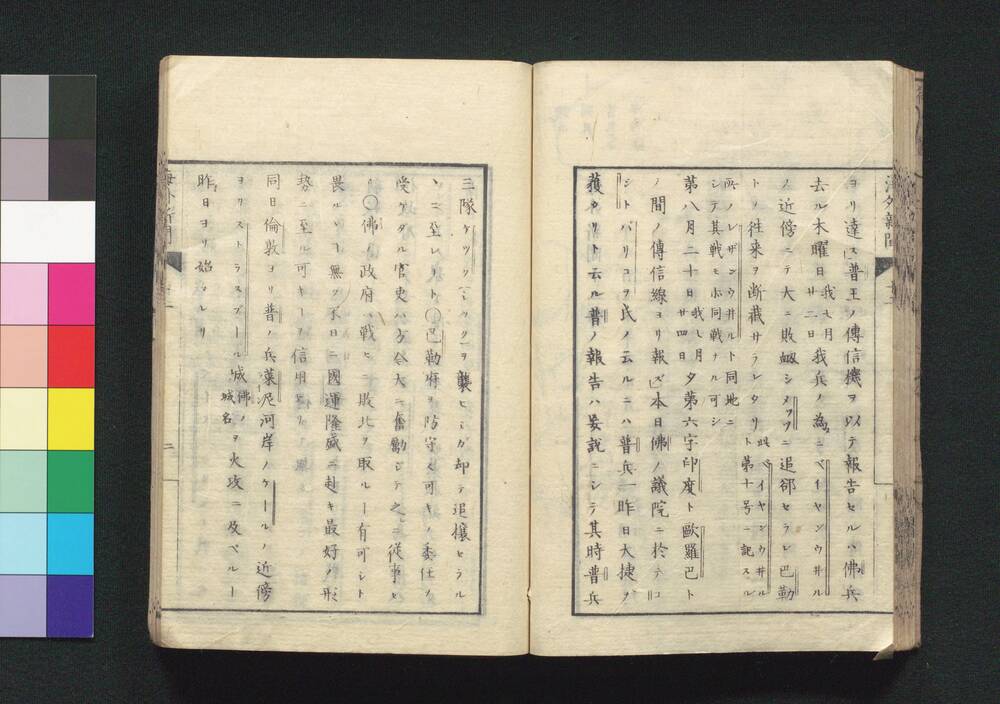 ヨリ達ス普王ノ傳信機ヲ以テ報告セルハ佛兵
去ル木曜日我七月廿二日我兵ノ為ニベイヤンウ井ル
ノ近傍ニテ大ニ敗衂シタウフニ追郤セラレ巴勒
トノ往来ヲ断截サラレタリ此ベイヤンウ井ルト第十号ニ記スル
所ノレザンウ井ルト同地ニシテ其戦モ亦同戦ナル可シ
第八月二十日我七月廿四日夕第六字印度ト歐羅巴ト
ノ間ノ傳信線ヨリ報ズ本日佛ノ議院ニ於テコ
ントパリコヲ氏ノ云ルニハ普兵一昨日大捷ヲ
獲タリト云ル普ノ報告ハ妄説ニシテ其時普兵
三隊ケツクヲ襲ヒシガ却テ追攘セラル
ヽニ至レリト〇巴勒府ヲ防守ス可キノ委任ヲ
受ケタル官吏ハ方今大ニ奮勵シテ之ニ従事セ
〇佛ノ政府ハ戦ヒニ敗北ヲ取ルー有可シト
畏ルヽー無ク不日ニ國運隆盛ニ赴キ最好ノ形
勢ニ至ル可キーヲ信用セリ
同日倫敦ヨリ普ノ兵萊尼河岸ノケールノ近傍
ヨリストラスブール城佛ノ城名ヲ火攻ニ及ベルー
昨日ヨリ始レリ
海外新聞
二